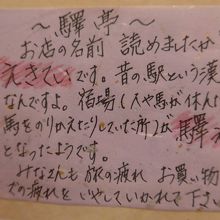 ～驛亭～
お店の名前 読めましたか
えきていです。昔の駅という漢
なんですよ。宿場(人や馬が休ん
馬をのりかえたりしていた所)が驛
となったようです。
みなさんも 旅の疲れ お買い物
での疲れを いやしていかれて下さ